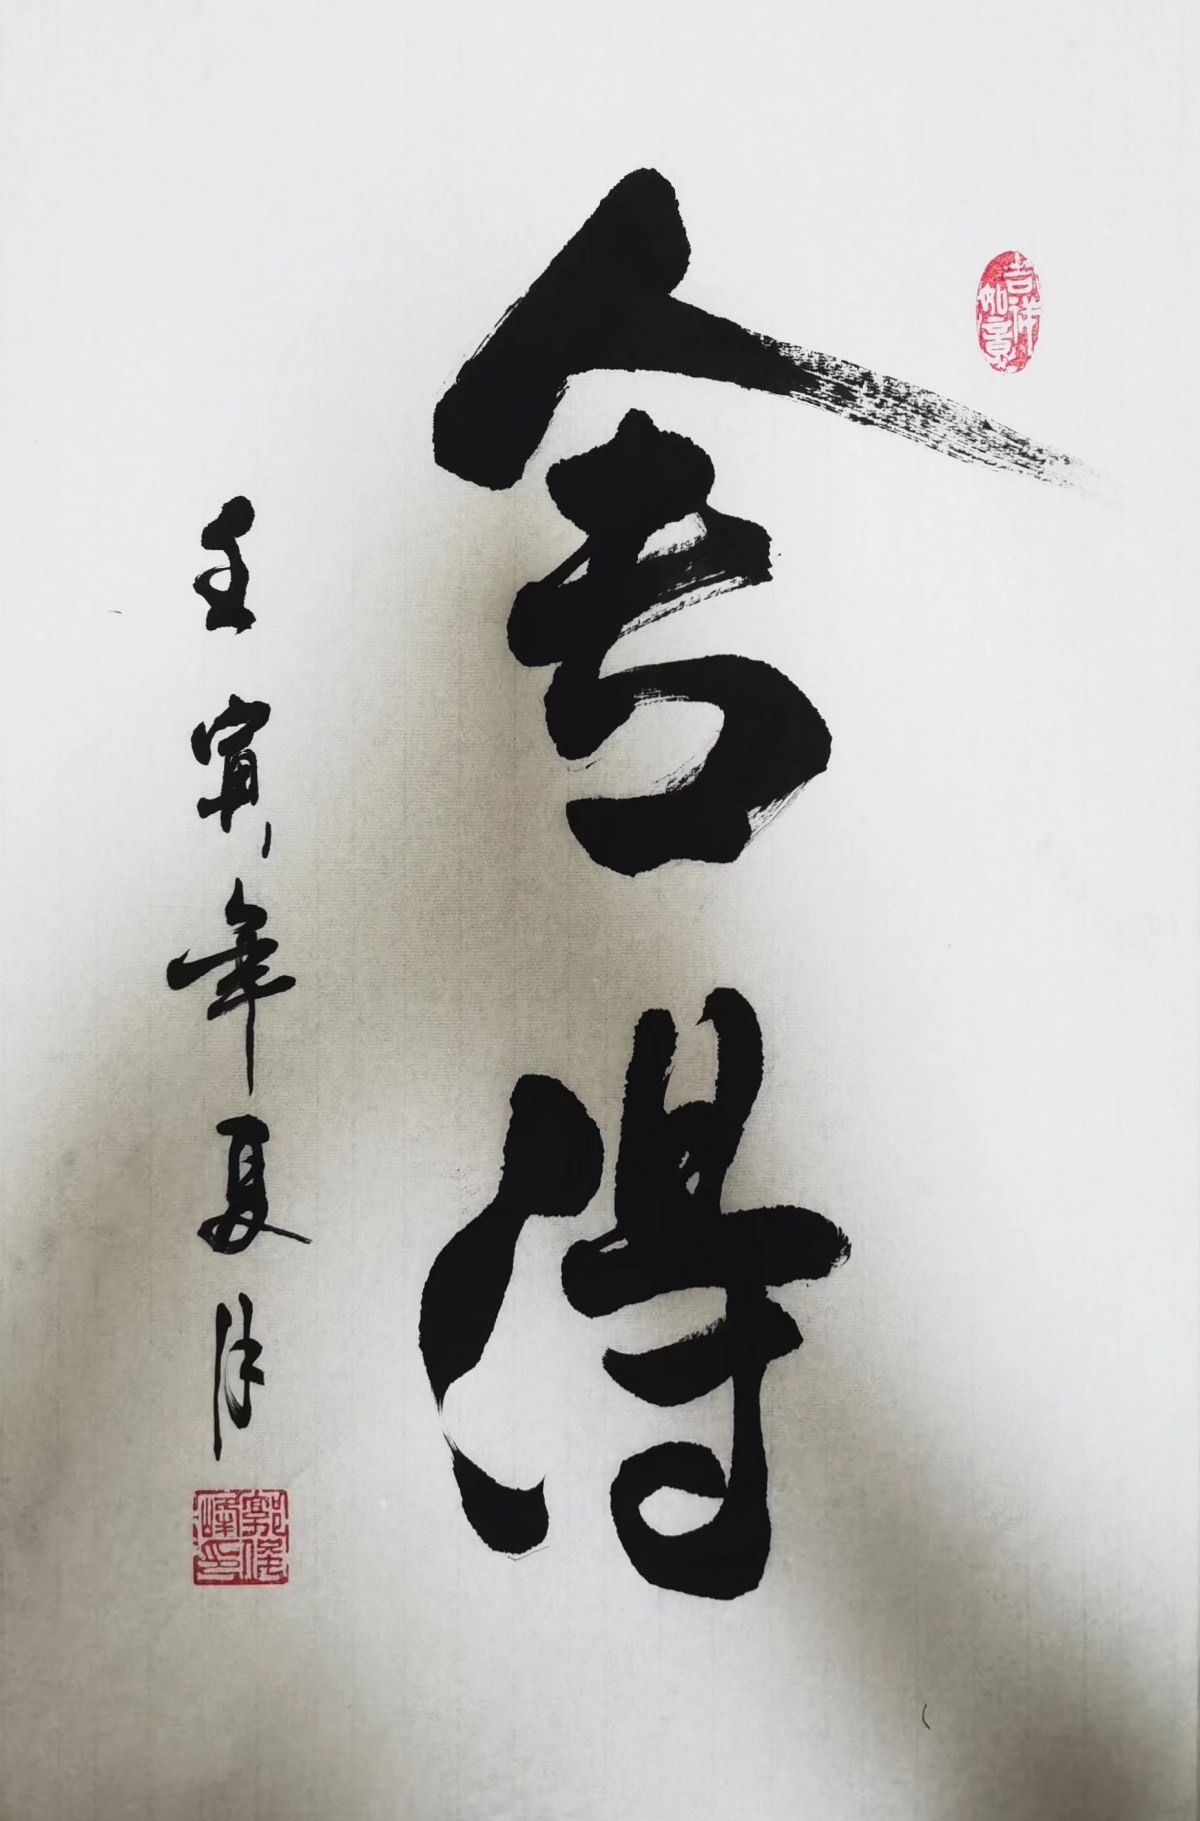 舍得
壬寅年夏月
吉祥如意